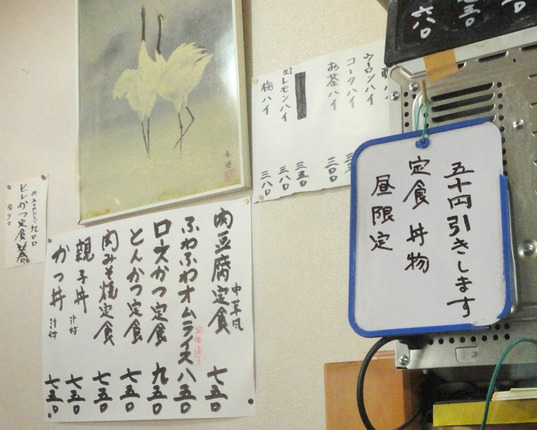 六八〇
五十円引きします
定食 丼物
昼限定
ウーロンハイ
コークハイ
お茶ハイ
生レモンハイ 三五〇
梅ハイ 三八〇
中華風
肉豆腐定食 七五〇
ふわふわオムライス 八五〇
ロースかつ定食 九五〇
とんかつ定食 七五〇
肉みそ焼定食 七五〇
親子丼 汁付 七五〇
かつ丼 汁付 七五〇
とんかつ定食